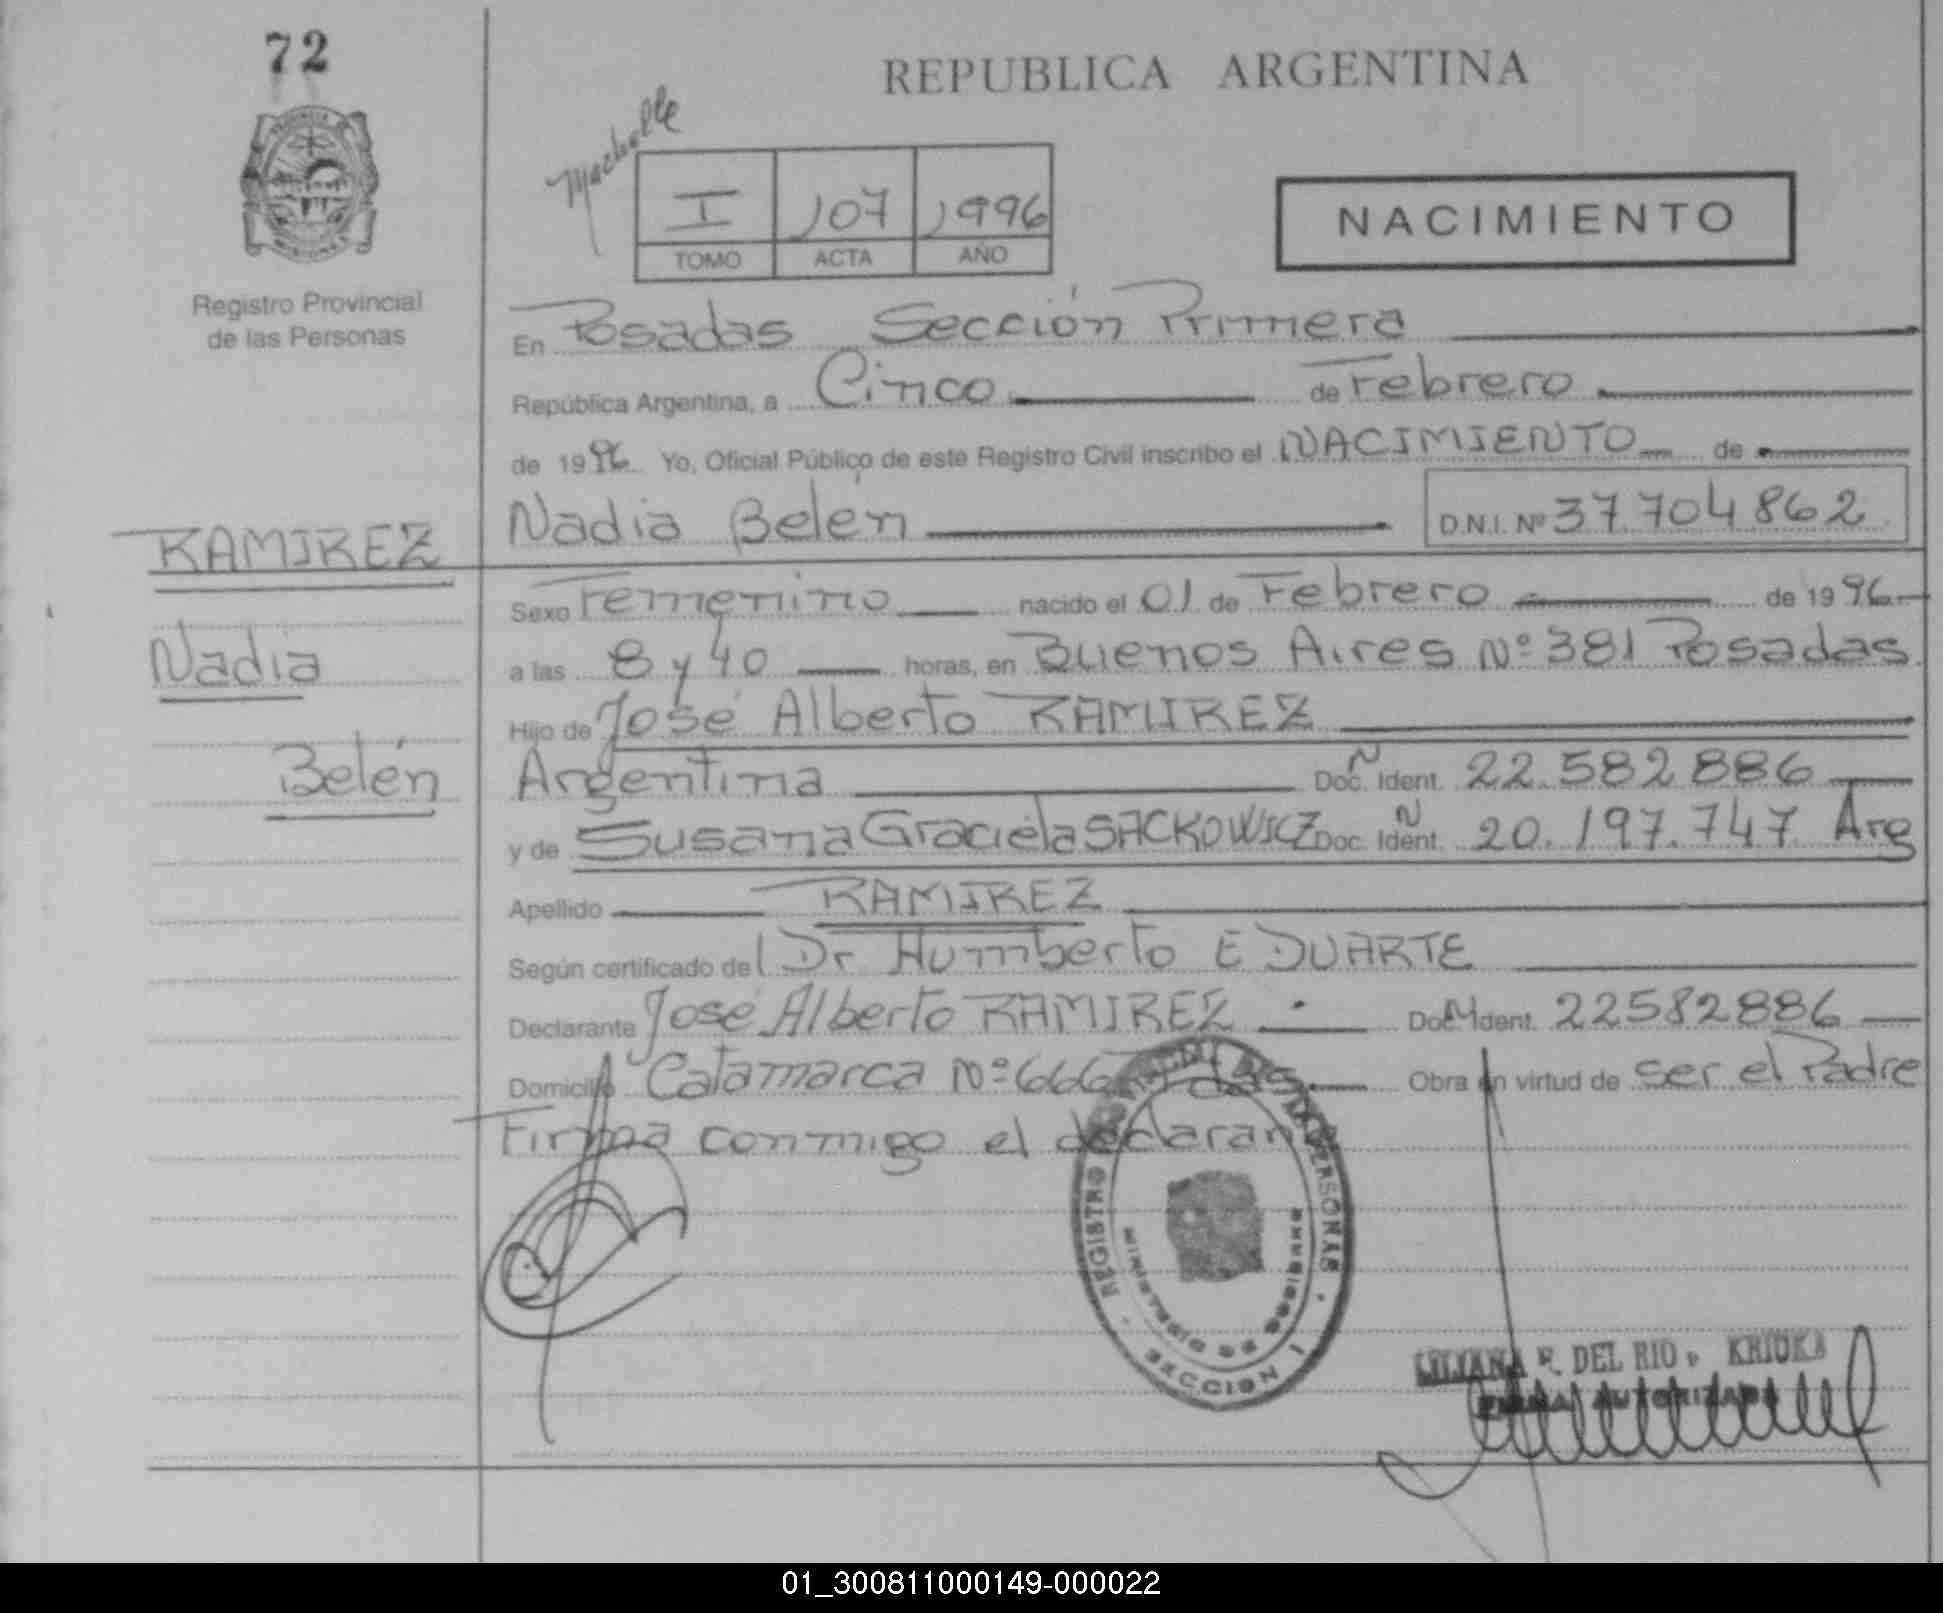 72
REPUBLICA ARGENTINA
I 107 1996
TOMO ACTA AÑO
NACIMIENTO
Registro Provincial
de las Personas
En Posadas Sección Primera
República Argentina, a Cinco de Febrero
de 1996 Yo, Oficial Público de este Registro Civil inscribo el NACIMIENTO de
Nadia Belén D.N.I. Nº 37.704.862
RAMIREZ
Nadia
Belén
Sexo Femenino nacido el 01 de Febrero de 1996
a las 8 y 40 horas, en Buenos Aires Nº 381 Posadas
Hijo de José Alberto RAMIREZ
Argentina Doc. Ident. 22.582.886
y de Susana Graciela SACKOWICZ Doc. Ident. 20.197.747 Arg
Apellido RAMIREZ
Según certificado del Dr Humberto E DUARTE
Declarante José Alberto RAMIREZ Doc. Ident. 22582886
Domicilio Catamarca Nº 666 Obra en virtud de ser el Padre
Firma conmigo el declarante
REGISTRO PERSONAS
SECCION I
LILIANA F. DEL RIO KRIUKA
FIRMA AUTORIZADA
01_300811000149-000022